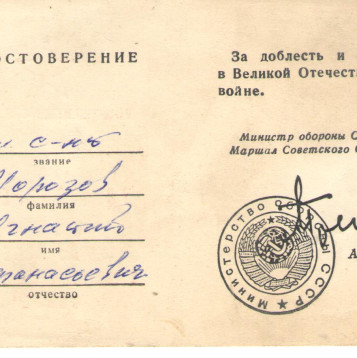 ОСТОВЕРЕНИЕ
с-нт
звание
Морозов
фамилия
Игнатий
имя
фанасьевич
отчество
За доблесть и
в Великой Отечест
войне.
Министр обороны С
Маршал Советского С
МИНИСТЕРСТВО ОБОРОНЫ СССР
А